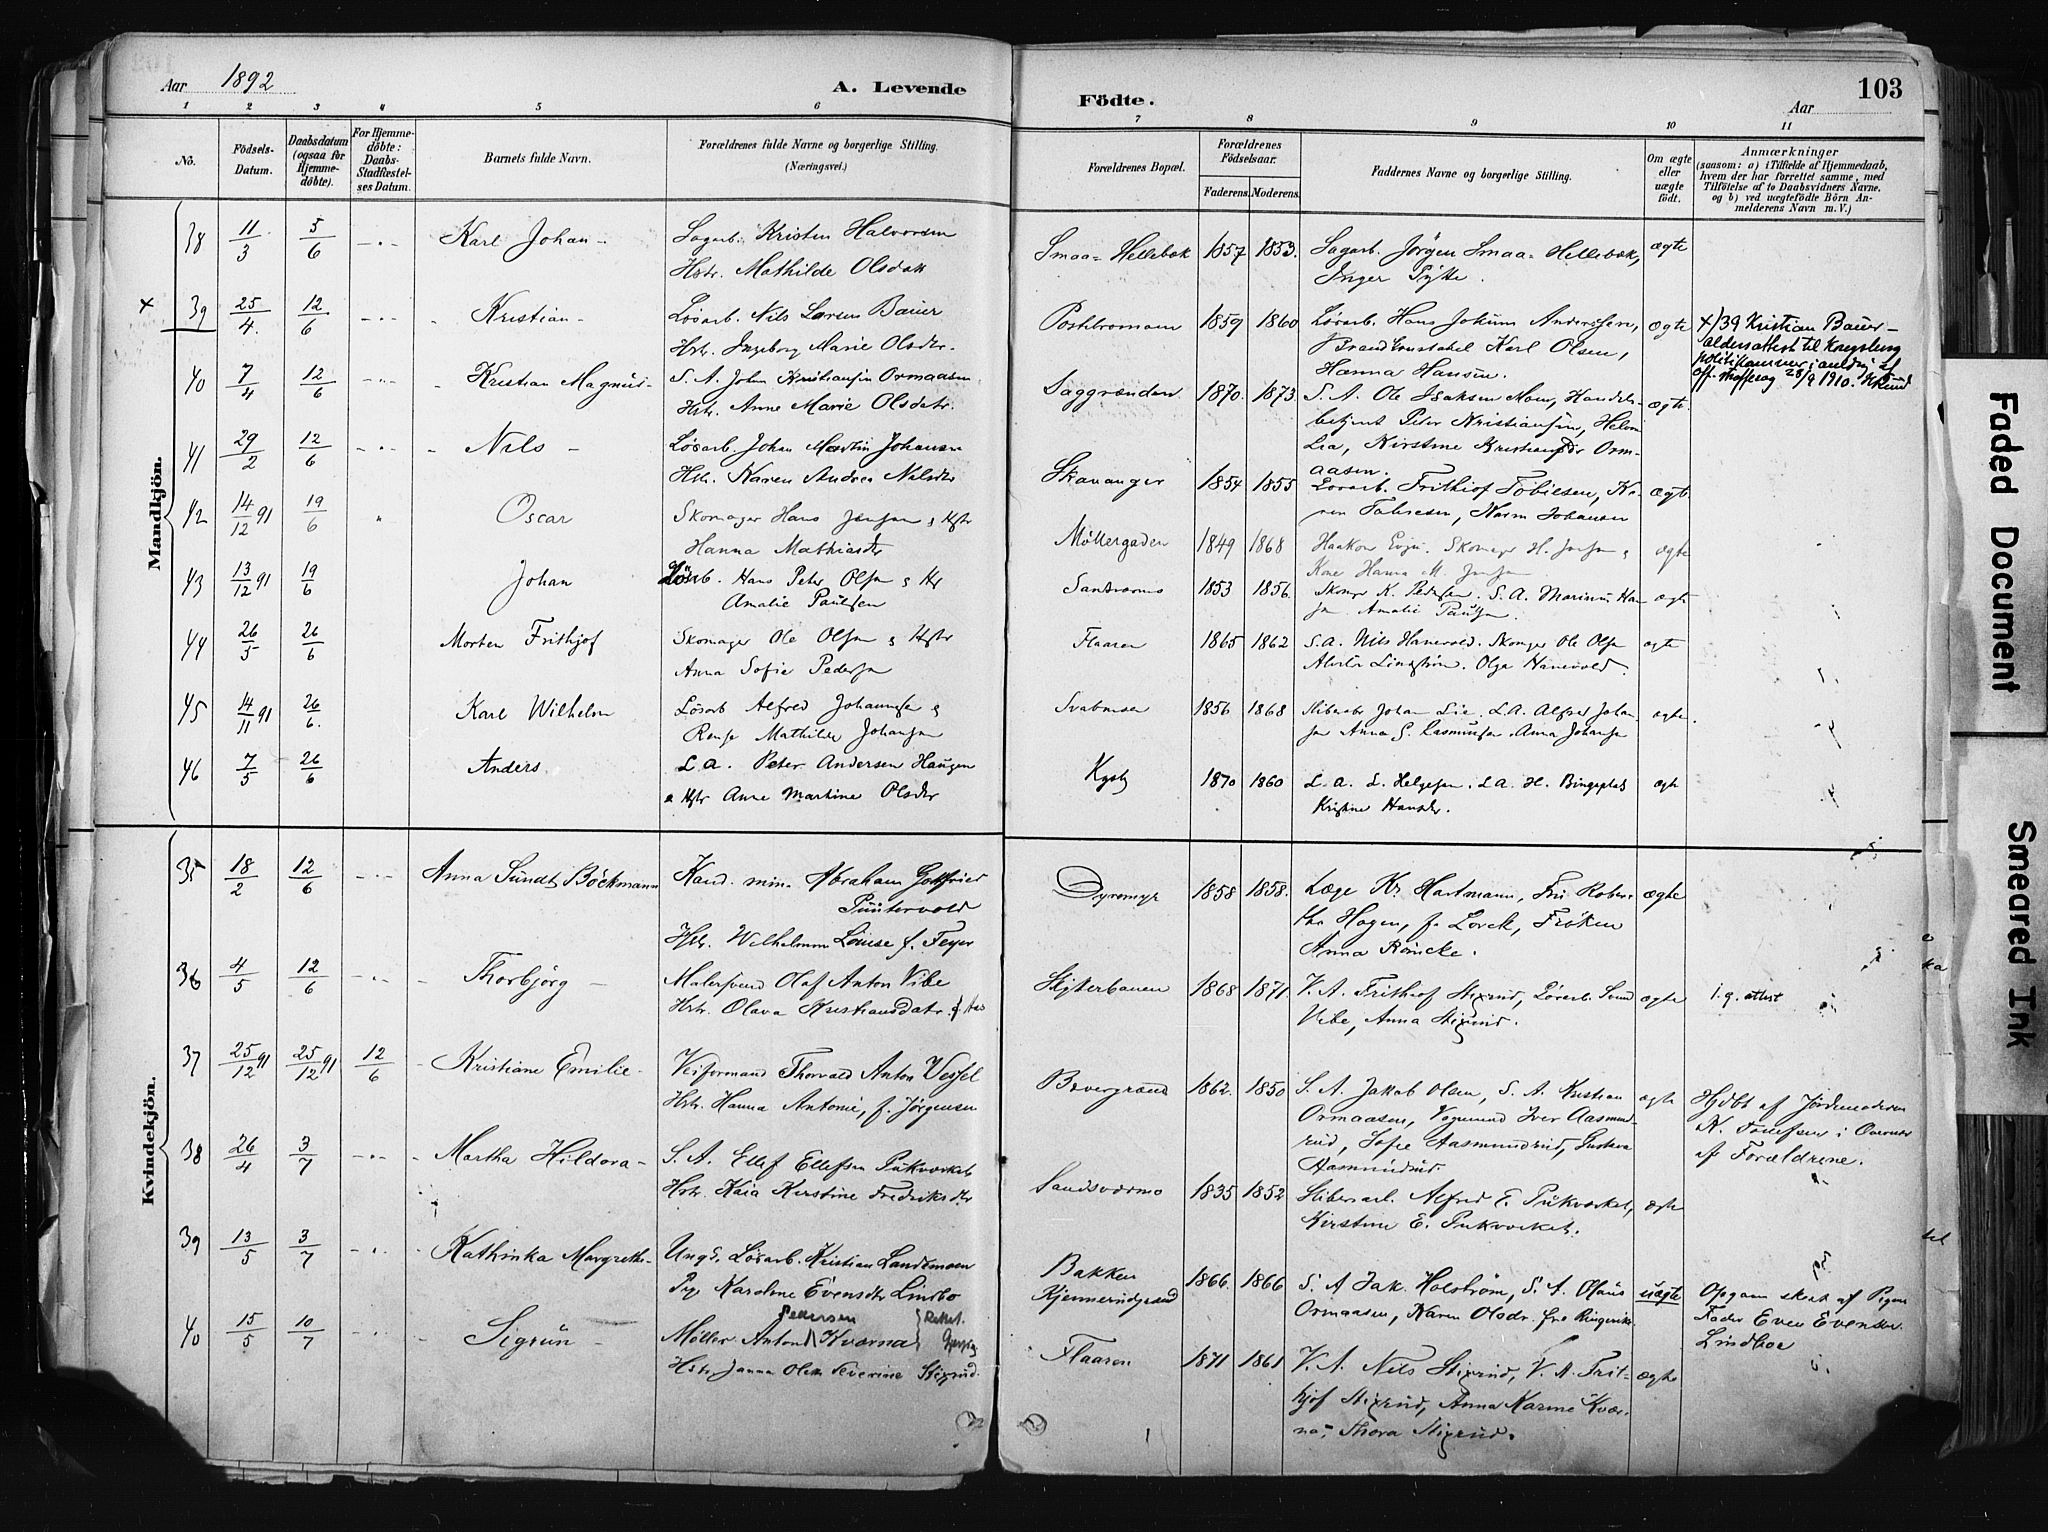 Aar 1892
A. Levende
Födte.
Aar
103
1 2 3 4 5 6 7 8 9 10 11
No.
Födsels-
Datum.
Daabsdatum
(ogsaa for
Hjemme-
döbte).
For Hjemme-
döbte:
Daabs-
Stadfæstel-
ses Datum.
Barnets fulde Navn.
Forældrenes fulde Navne og borgerlige Stilling.
(Næringsvei.)
Forældrenes Bopæl.
Forældrenes
Födselsaar.
Faderens. Moderens.
Faddernes Navne og borgerlige Stilling.
Om ægte
eller
uægte
födt.
Anmærkninger
(saasom: a) i Tilfælde af Hjemmedaab,
hvem der har forrettet samme, med
Tilföielse af to Daabsvidners Navne.
og b) ved uægtefödte Börn An-
melderens Navn m. V.)
Mandkjön.
38 11/3 5/6 - " - Karl Johan -
Sagarb. Kristen Halvorsen
Hstr. Mathilde Olsdatt
Smaa-Hellebæk 1857 1853.
Sagarb. Jörgen Smaa-Hellebæk,
Inger Pytte.
ægte
x 39 25/4. 12/6 - " - Kristian -
Lösarb. Nils Lorens Bauer
Hstr. Ingeborg Marie Olsdtr.
1859 1860
Lösarb. Hans Jokum Anderssen,
Brandkonstabel Karl Olsen,
Hanna Hansen.
ægte
x/39 Kristian Bauer -
aldersattest til Kongsberg
politikammer i anledn. af
off. straffesag 28/9 1910.
40 7/4 12/6 - " - Kristian Magnus -
S. A. Johan Kristiansen Ormaasen
Hstr. Anne Marie Olsdatr.
Saggrenden 1870. 1873.
S. A. Ole Isaksen Moen, Handels-
betjent Peter Kristiansen, Helene
Lia, Kirstine Kristiansdtr Orm-
aasen.
ægte.
41 29/2 12/6 - " - Nils -
Lösarb. Johan Martin Johansen
Hstr. Karen Andrea Nilsdtr
Skavanger 1854 1855
Lösarb. Frithjof Tobiesen, Ka-
ren Tobiesen, Karen Johansen
ægte
42 14/12 91 19/6 " Oscar
Skomager Hans Jensen & Hstr
Hanna Mathiasdtr
Möllergaden 1849 1868
Haakon. Skomager H. Jensen &
Kone Hanna M. Jensen
ægte
43 13/12 91 19/6 Johan
Lösarb. Hans Peter Olsen & Hstr
Amalie Paulsen
Sandsværms 1853 1856.
Skomgr K. Pedersen. S. A. Marinius Han-
sen. Amalie Paulsen.
ægte
44 26/5 26/6 Morten Frithjof
Skomager Ole Olsen & Hstr
Anna Sofie Pedersen
Flaaren 1865 1862
S.A. Nils Hanevold. Skomgr Ole Olsen
Alvilde Lindström. Olga Hanevold.
ægte
45 14/11 91 26/6. Karl Wilhelm
Lösarb Alfred Johannsen &
Mathilde Johansen
1856 1868
Johan Lie. L.A. Alfred Johan
sen Anna G. Rasmussen. Anna Johansen
ægte.
46 7/5 26/6 Anders.
L.A. Peter Andersen Haugen
& Hstr Anne Martine Olsdtr
1870 1860
L. A. L. Helgesen. L.A. H. Bingeplas
Kristine Hansdtr.
ægte
Kvindekjön.
35 18/2 12/6 - " - Anna Sundt Böckmann
Kand. min. Abraham Gottfried
Puntervold
Hstr. Wilhelmine Louise f. Feyer
Dyrmyr 1858 1858.
Læge Kr. Hartmann, Fru Rober-
tha Hagen, f. Lorck, Fröken
Anna Röncke.
ægte
36 4/5 12/6 - " - Thorbjörg -
Malersvend Olaf Anton Vibe
Hstr. Olava Kristiansdatr.
Skytterbanen 1868 1871.
V. A. Frithjof Stigerud, Lösarb. Svend
Vibe, Anna Stigerud.
ægte
l. g. attest
37 25/12 91 25/12 91 12/6 - Kristiane Emilie -
Veiformand Thorvald Anton Vessel
Hstr. Hanna Antonie, f. Jörgensen
Bævergrænd 1862. 1850
S. A. Jakob Olsen, S. A. Kristian
Ormaasen, Vognmand Iver Aasmund-
rud, Sofie Aasmundrud, Gustava
Aasmundrud
ægte
Hjdbt af Jordemoderen
N. i Overvær
af Forældrene.
38 26/4 3/7 - " - Martha Hildora -
S. A. Ellef Ellefsen Pukværket
Hstr. Kaia Kirstine Fredriksdtr
Sandsværms 1835 1852
Stiberarb. Alfred E. Pukværket,
Kirstine E. Pukværket.
ægte
39 13/5 3/7 - " - Kathinka Margrethe -
Ungk. Lösarb. Kristian Landsmoen
Pige Karoline Evensdtr Lindbo
Bakken
Kjennerudgrænd 1866. 1866
S. A. Jak. Holström, S. A. Olaus
Ormaasen, Karen Olsdr. fra Ringerike
uægte
Opgave sket af Pigens
Fader Even Evensen
Lindboe
40 15/5 10/7 Sigrun -
Pedersen
Möller Anton Kværna
Hstr. Janna Severine Stigerud.
Flaaren 1871 1861
V. A. Nils Stigerud, V. A. Frit-
hjof Stigerud, Anna Karine Kvær-
na, Thora Stigerud.
ægte
Faded Document
Smeared Ink